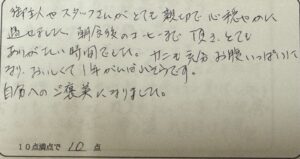 衛さんやスタッフさんがとても親切で心穏やかに
過せました。朝食後のコーヒーまで頂き、とても
ありがたい時間でした。カニも充分お腹いっぱいに
なり、おいしくて1年がんばれそうです。
自分へのご褒美になりました。
10点満点で 10 点